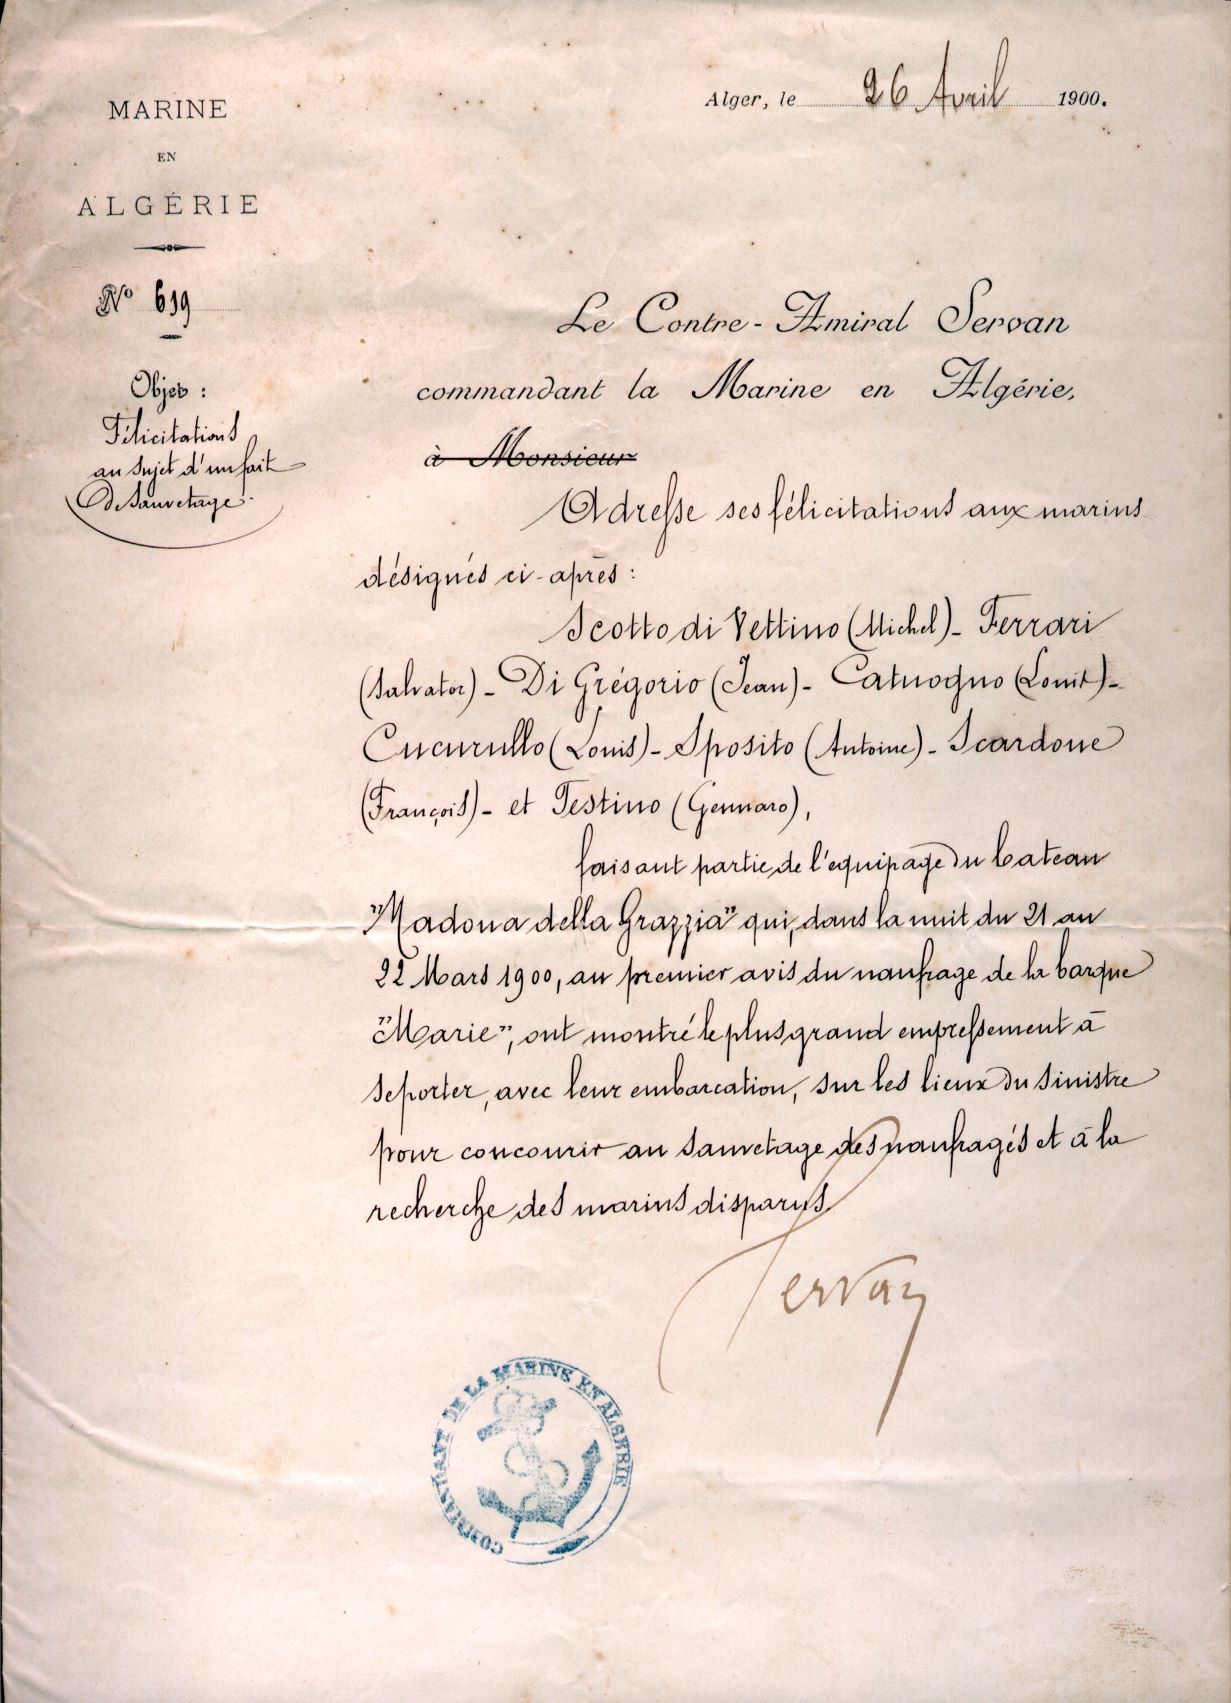 Alger, le 26 Avril 1900.
MARINE
EN
ALGÉRIE
N° 619
Objet :
Félicitations
au sujet d'un fait
de sauvetage.
Le Contre-Amiral Servan
commandant la Marine en Algérie,
à Monsieur
Adresse ses félicitations aux marins
désignés ci-après :
Scotto di Vettino (Michel) - Ferrari
(Salvator) - Di Grégorio (Jean) - Catuogno (Louis) -
Cucurullo (Louis) - Sposito (Antoine) - Scardone
(François) - et Testino (Gennaro),
faisant partie de l'equipage du bateau
"Madona della Grazzia" qui, dans la nuit du 21 au
22 Mars 1900, au premier avis du naufrage de la barque
"Marie", ont montré le plus grand empressement à
se porter, avec leur embarcation, sur les lieux du sinistre
pour concourir au sauvetage des naufragés et à la
recherche des marins disparus.
Servan
COMMANDANT DE LA MARINE EN ALGERIE